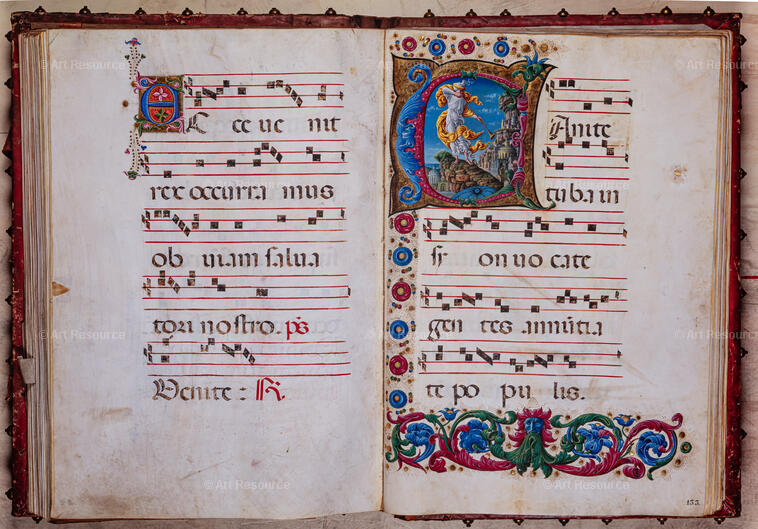 Ecce ue nit
rex occurra mus
ob uiam salua
tori nostro. ps
Venite: R.
CAnite
tuba in
si on uo cate
gen tes annūtia
te po pu lis.
153.
© Art Resource
© Art Resource
© Art Resource
© Art Resource
© Art Resource
© Art Resource
© Art Resource
© Art Resource